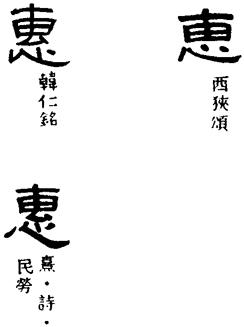 惠
韓仁銘
惠
西狹頌
惠
熹・詩・
民勞